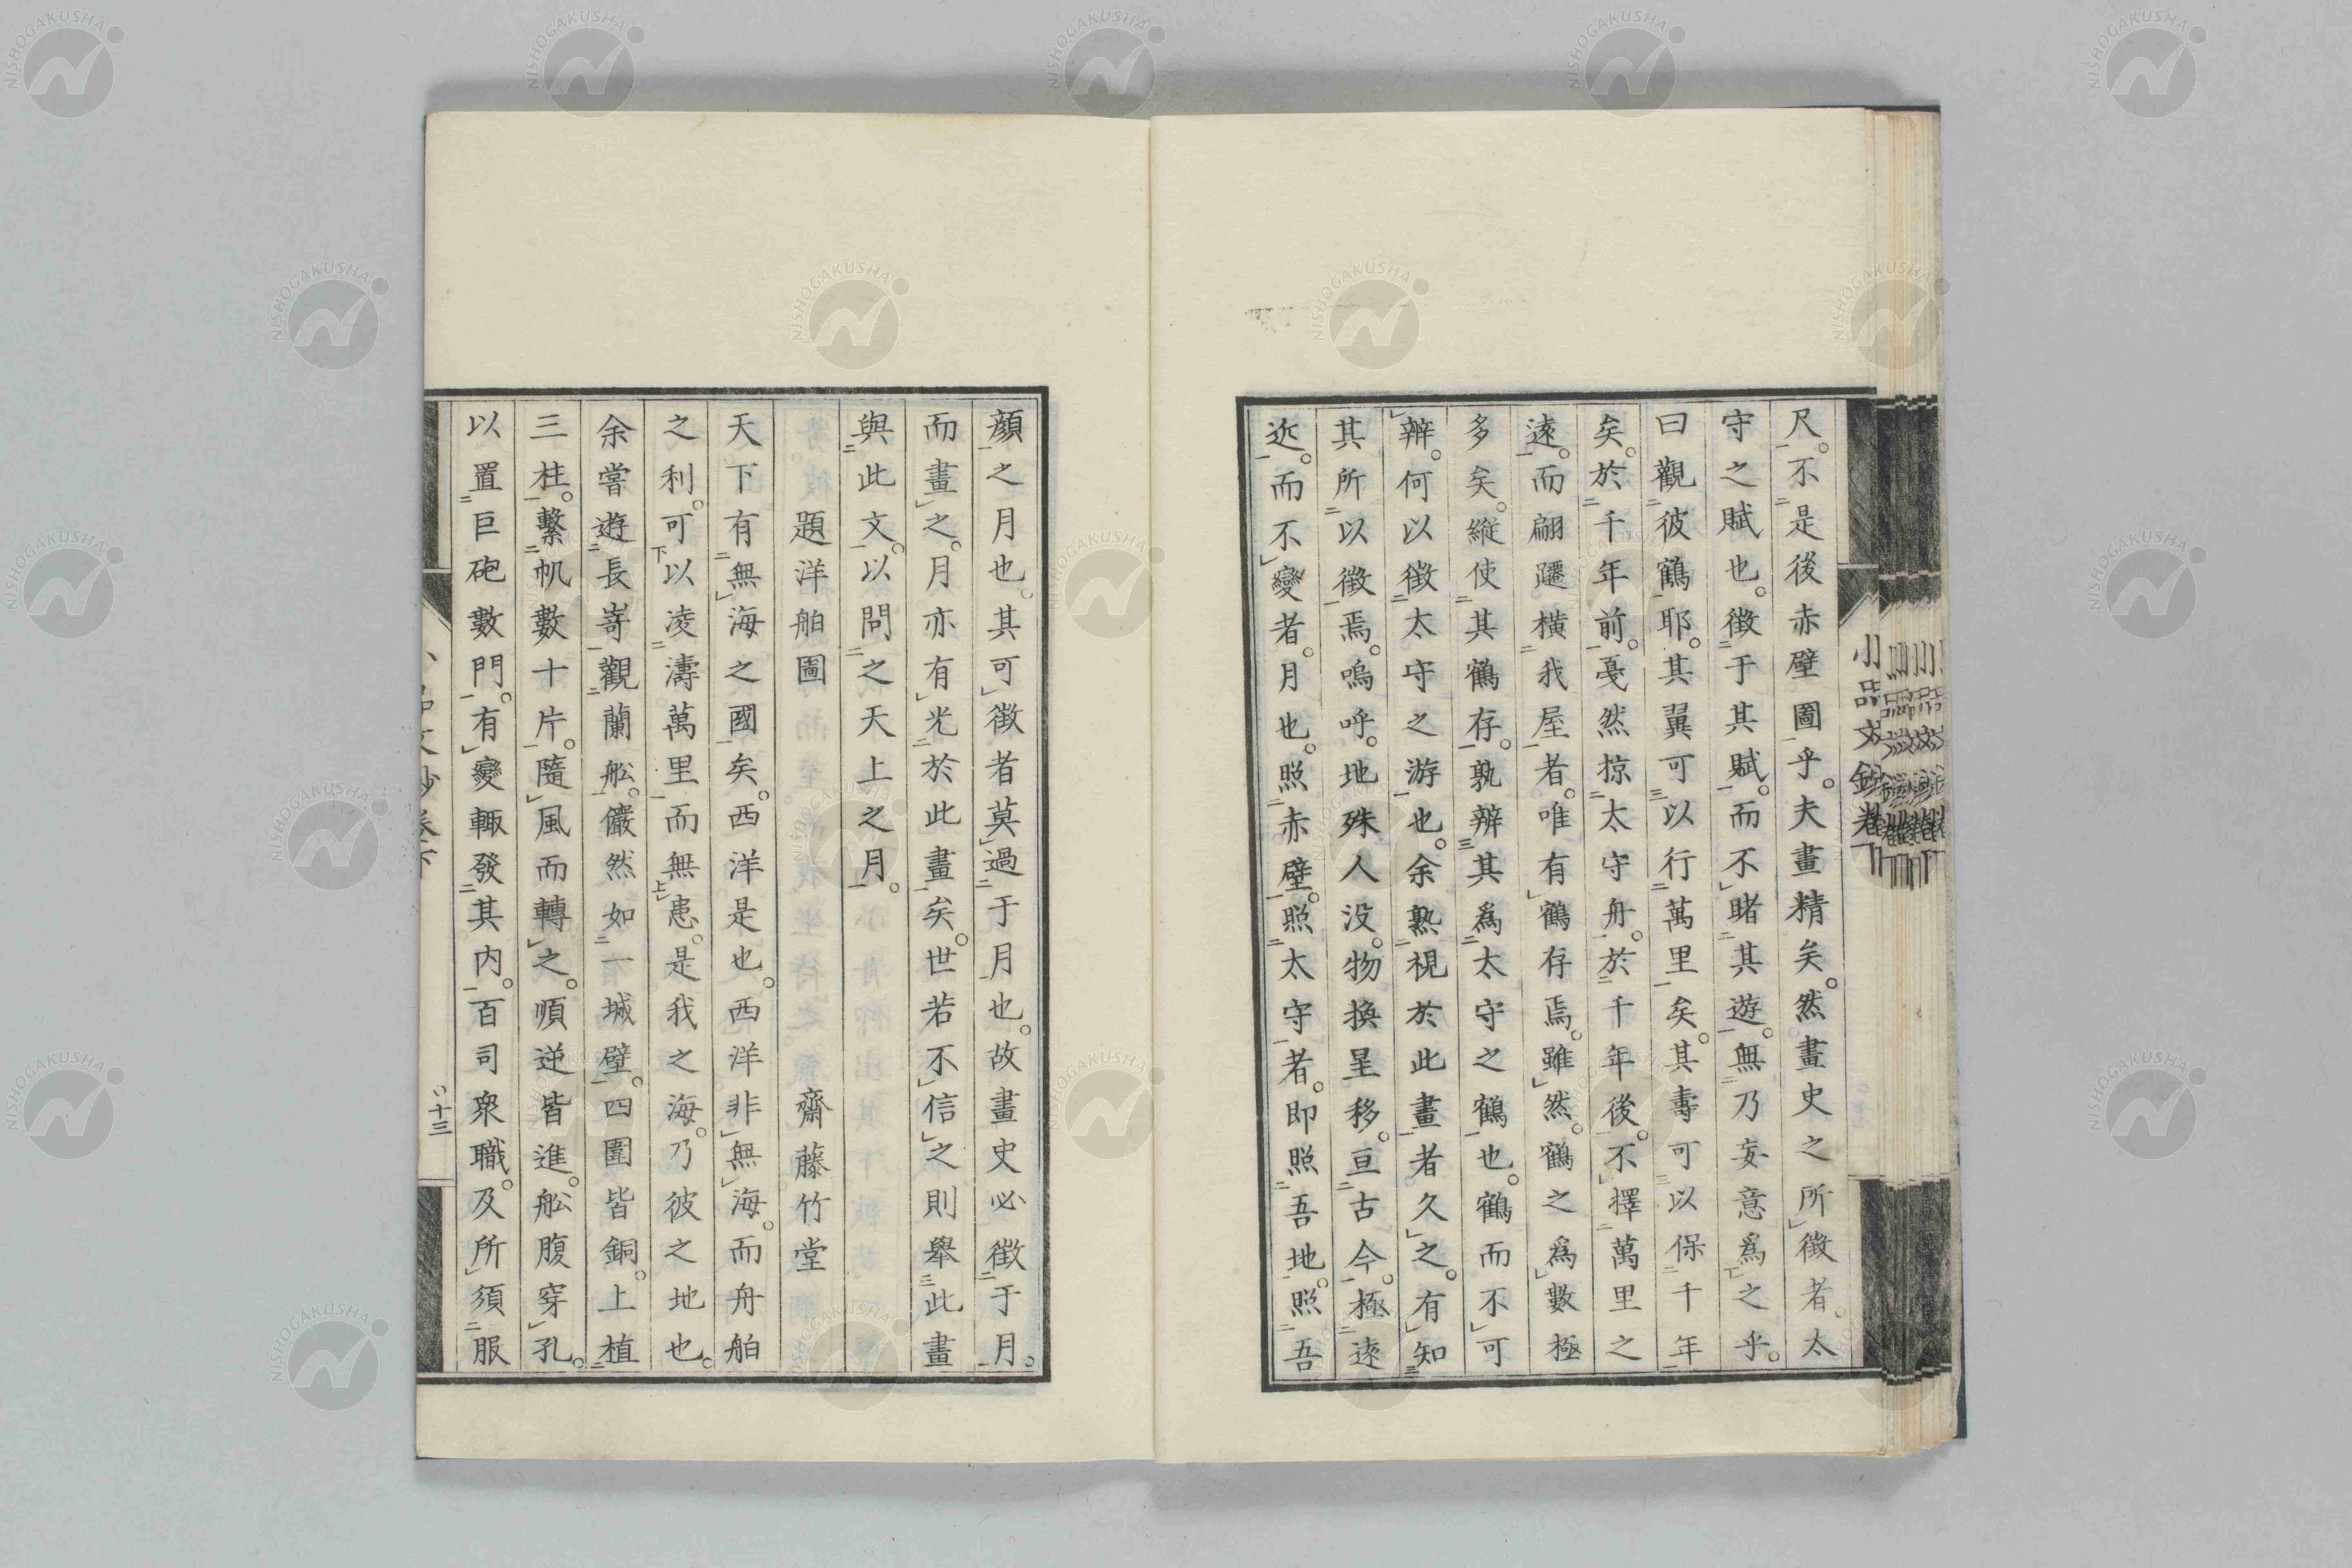 尺。不是後赤壁圖乎。夫畫精矣。然畫史之所徵者。太
守之賦也。徵于其賦。而不睹其遊。無乃妄意爲之乎。
曰觀彼鶴耶。其翼可以行萬里矣。其壽可以保千年
矣。於千年前。戞然掠太守舟。於千年後。不擇萬里之
遠。而翩躚橫我屋者。唯有鶴存焉。雖然。鶴之爲數極
多矣。縱使其鶴存。孰辨其爲太守之鶴也。鶴而不可
辨。何以徵太守之游也。余熟視於此畫者久之。有知
其所以徵焉。嗚呼。地殊人没。物換星移。亘古今。極遠
近。而不變者。月也。照赤壁。照太守者。即照吾地。照吾
顔之月也。其可徵者莫過于月也。故畫史必徵于月。
而畫之。月亦有光於此畫矣。世若不信之則舉此畫
與此文。以問之天上之月。
題洋舶圖 齋藤竹堂
天下有無海之國矣。西洋是也。西洋非無海。而舟舶
之利。可以凌濤萬里而無患。是我之海。乃彼之地也。
余嘗遊長嵜觀蘭舩。儼然如一城壁。四圍皆銅。上植
三柱。繫帆數十片。隨風而轉之。順逆皆進。舩腹穿孔。
以置巨砲數門。有變輙發其内。百司衆職。及所須服
小品文鈔卷下
十三
NISHOGAKUSHA